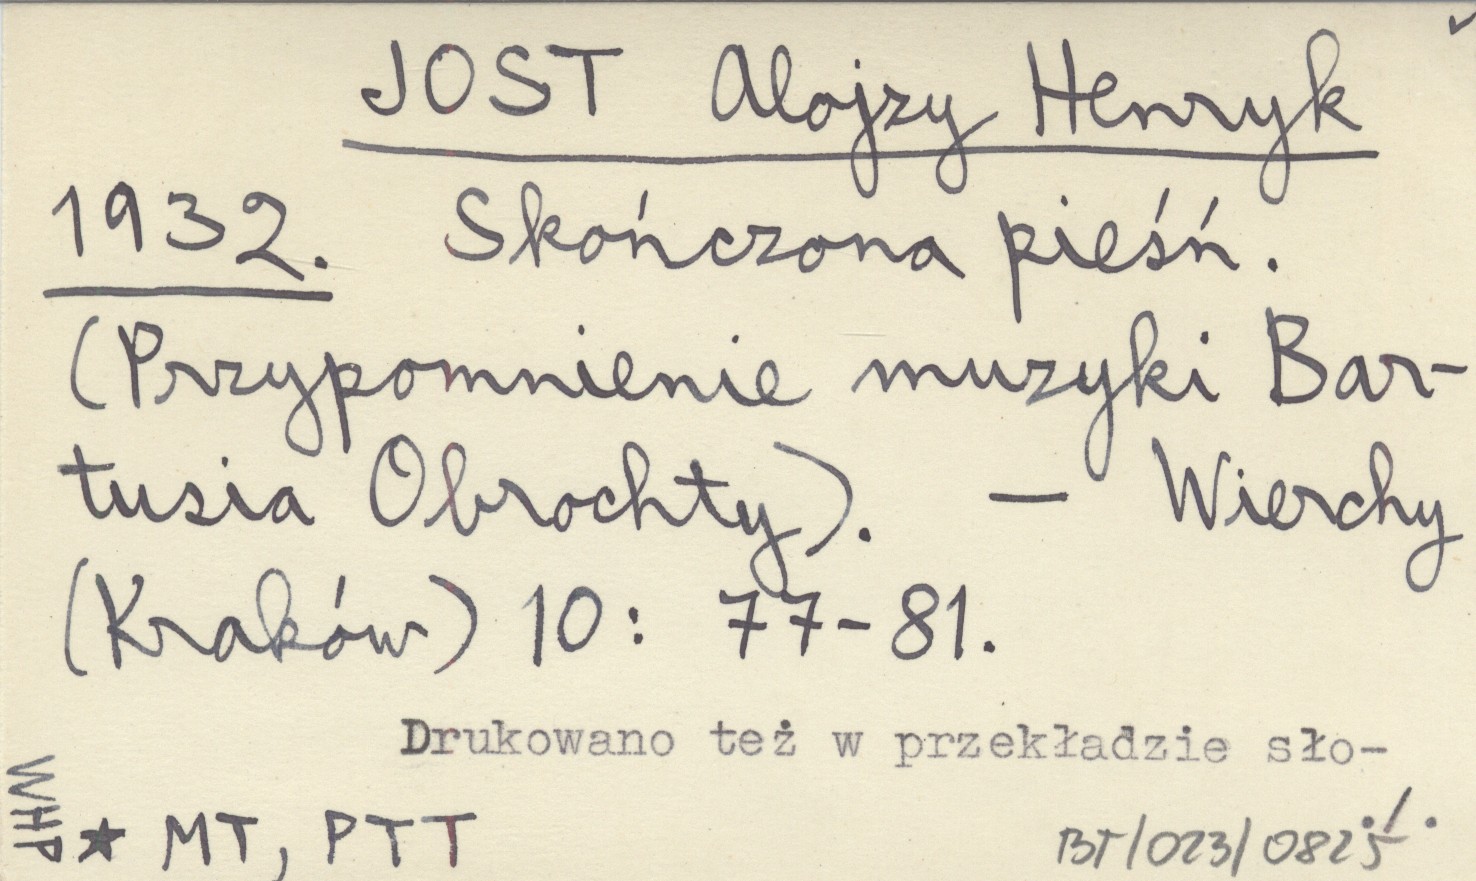 JOST Alojzy Henryk
1932. Skończona pieśń.
(Przypomnienie muzyki Bar-
tusia Obrochty). — Wierchy
(Kraków) 10: 77-81.
Drukowano też w przekładzie sło-
WHP
★ MT, PTT
./.
BT/023/0825